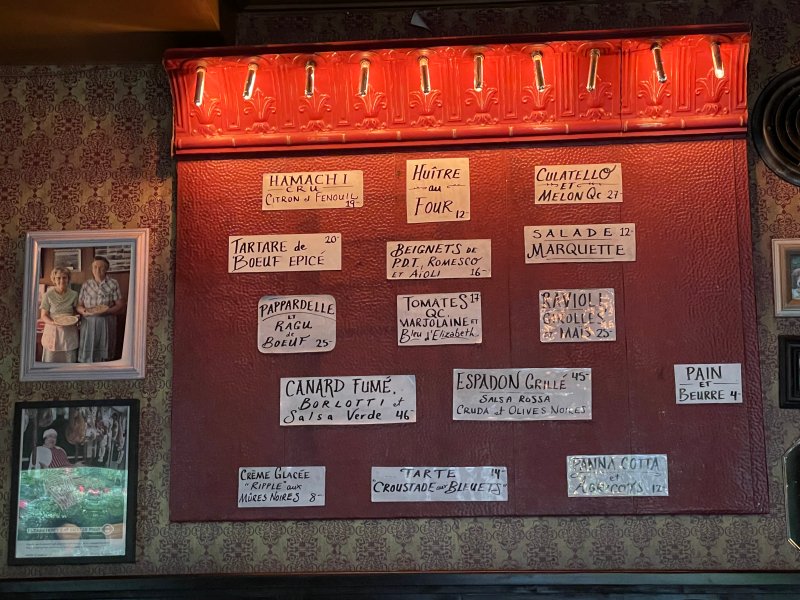 HAMACHI
CRU
CITRON et FENOUIL
19-
HUÎTRE
AU
FOUR 12-
CULATELLO
ET
MELON QC 27-
TARTARE de 20-
BOEUF ÉPICÉ
BEIGNETS DE
P.D.T, ROMESCO
et AÏOLI 16-
SALADE 12-
MARQUETTE
PAPPARDELLE
ET
RAGU
de
BOEUF 25-
TOMATES 17
QC,
MARJOLAINE ET
Bleu d'Elizabeth
RAVIOLI
GIROLLES
ET MAÏS 25
CANARD FUMÉ,
BORLOTTI et
Salsa Verde 46-
ESPADON GRILLÉ 45-
SALSA ROSSA
CRUDA et OLIVES NOIRES
PAIN
ET
BEURRE 4-
CRÈME GLACÉE
"RIPPLE" aux
MÛRES NOIRES 8-
TARTE 14-
"CROUSTADE aux BLEUETS"
PANNA COTTA
et
ABRICOTS 12-